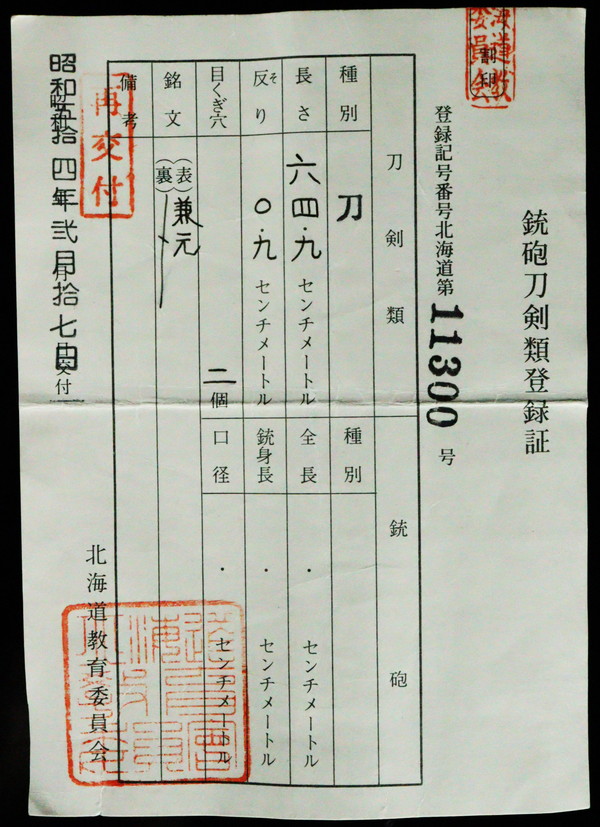 銃砲刀剣類登録証
登録記号番号北海道第11300号
刀剣類
銃砲
種別
刀
種別
長さ
六四.九センチメートル
全長
・センチメートル
反り
そ
〇.九センチメートル
銃身長
・センチメートル
目くぎ穴
二個
口径
・センチメートル
銘文
(表)兼元
(裏)
備考
再交付
昭和五拾四年弐月拾七日交付
北海道教育委員会